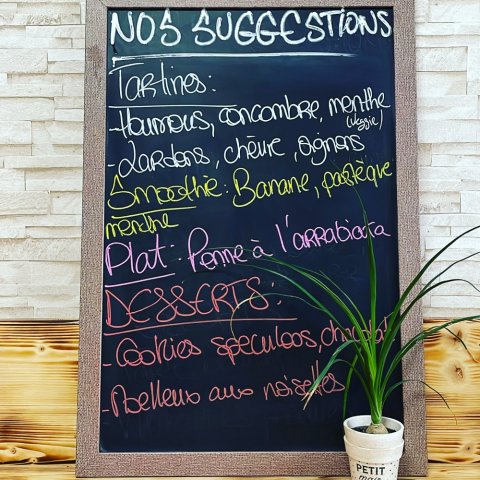 NOS SUGGESTIONS
Tartines:
- Houmous, concombre, menthe
(veggie)
- Lardons, chèvre, oignons
Smoothie: Banane, pastèque
menthe
Plat: Penne à l'arrabiata
DESSERTS:
- Cookies speculoos, chocolat
- Moelleux aux noisettes
PETIT
mais